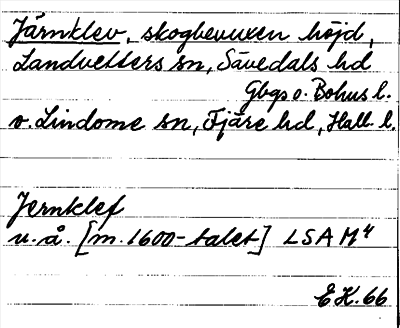 Järnklev, skogbevuxen höjd,
Landvetters sn, Sävedals hd
Gbgs o. Bohus l.
o. Lindome sn, Fjäre hd, Hall. l.
Jernklef
u.å. [m. 1600-talet] LSA M4
E K. 66